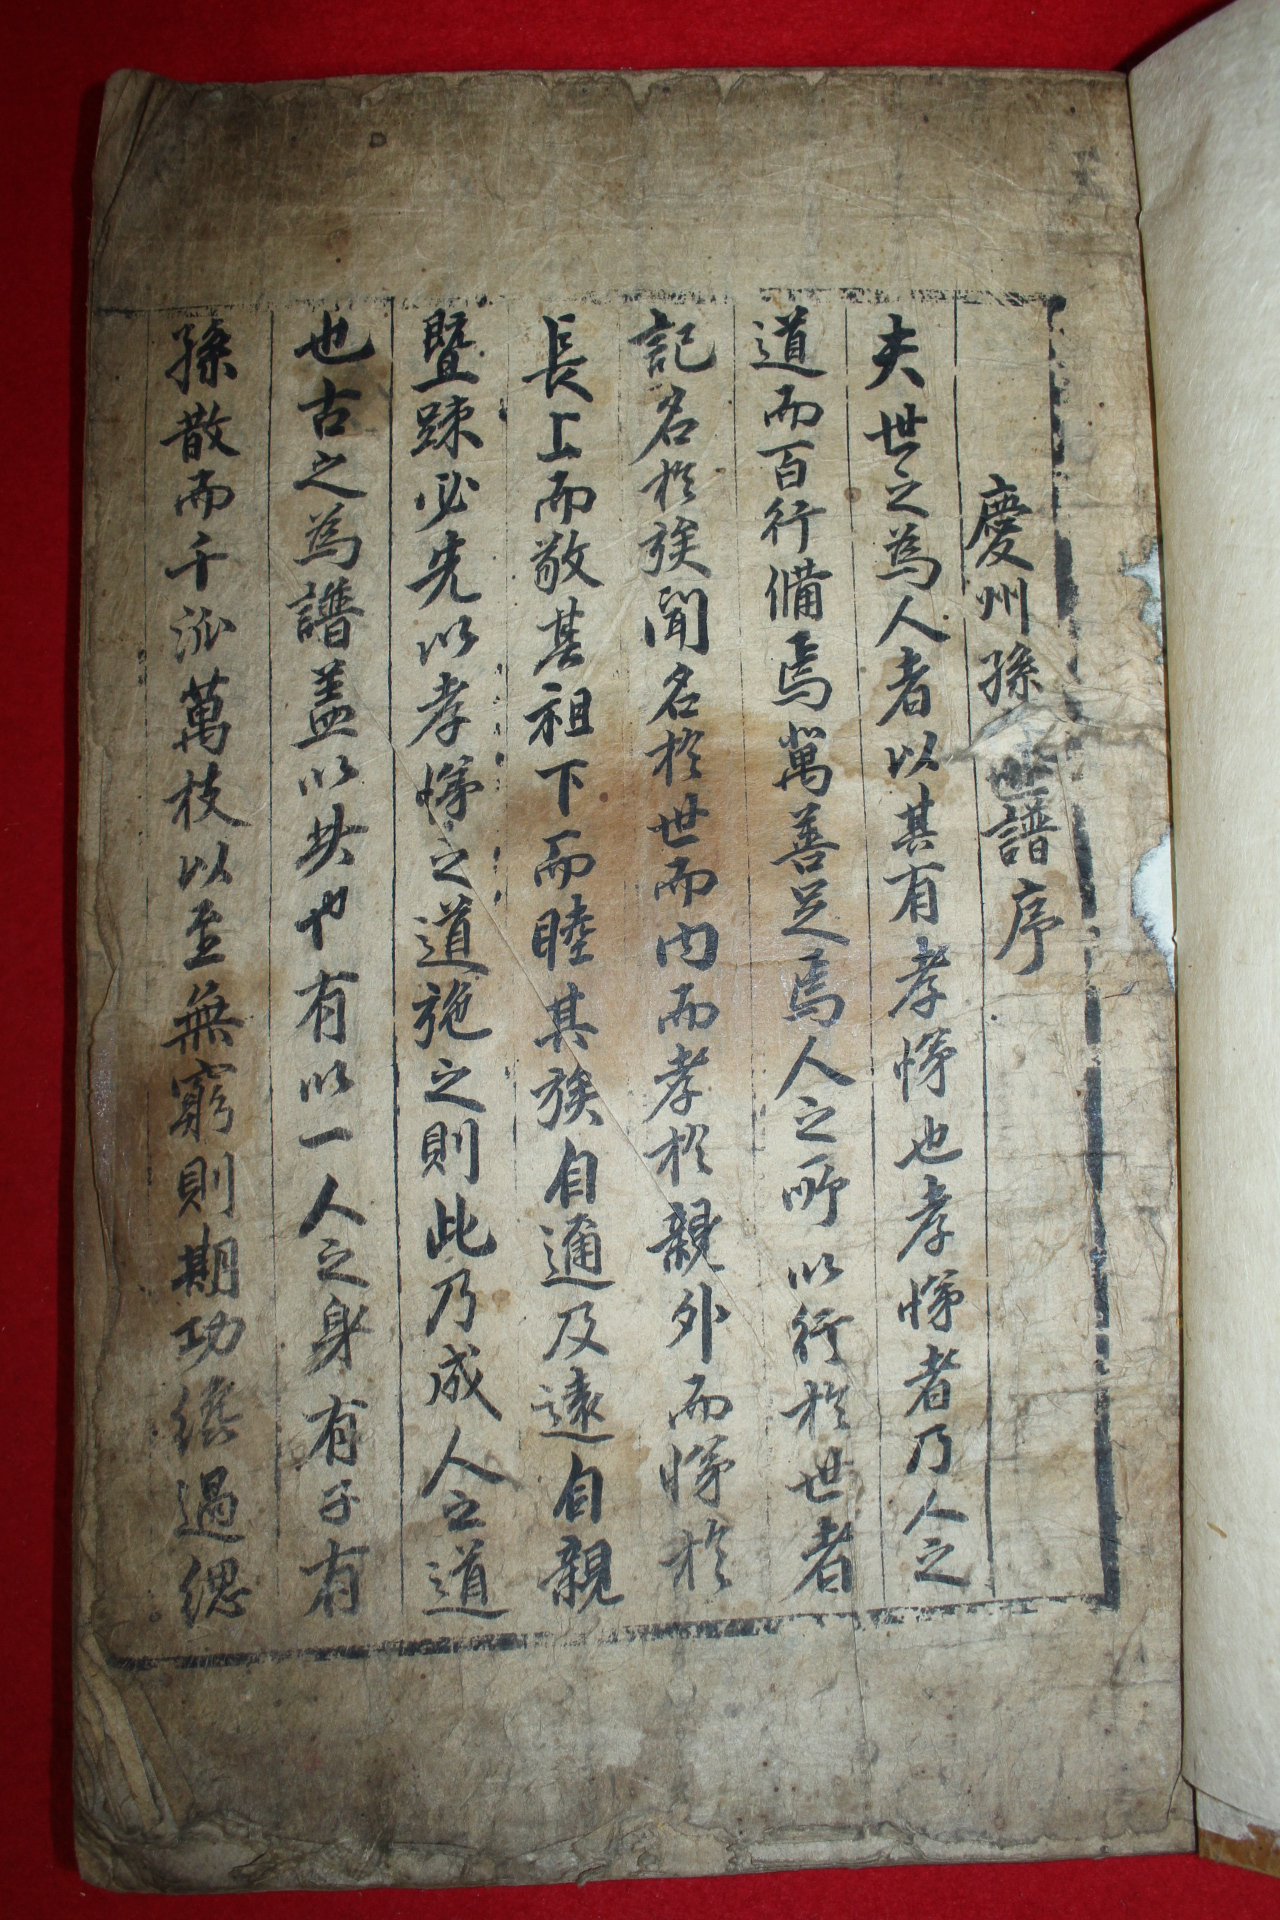 慶州孫世譜序
夫世之爲人者以其有孝悌也孝悌者乃人之
道而百行備焉萬善足焉人之所以行於世者
記名於族聞名於世而內而孝於親外而悌於
長上而敬其祖下而睦其族自邇及遠自親
曁踈必先以孝悌之道施之則此乃成人之道
也古之爲譜盖以此也有以一人之身有子有
孫散而千派萬枝以至無窮則期功緦過緦